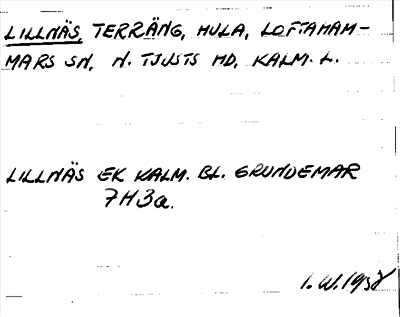 LILLNÄS, TERRÄNG, HULA, LOFTAHAM-
MARS SN, N. TJUSTS HD, KALM. L.
LILLNÄS EK KALM. BL. GRUNDEMAR
7H3a.
I.W. 1958